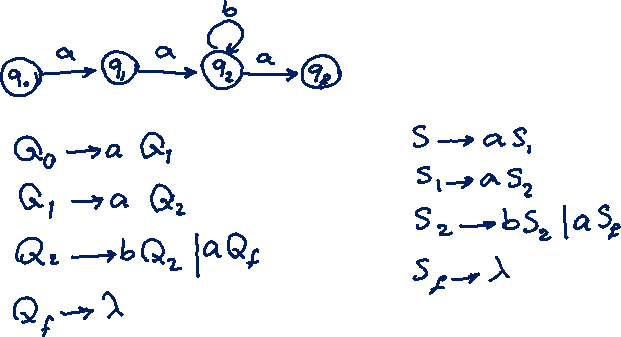 b
a a a
q₀ q₁ q₂ q_f
Q₀ → a Q₁
Q₁ → a Q₂
Q₂ → bQ₂ | aQ_f
Q_f → λ
S → aS₁
S₁ → aS₂
S₂ → bS₂ | aS_f
S_f → λ